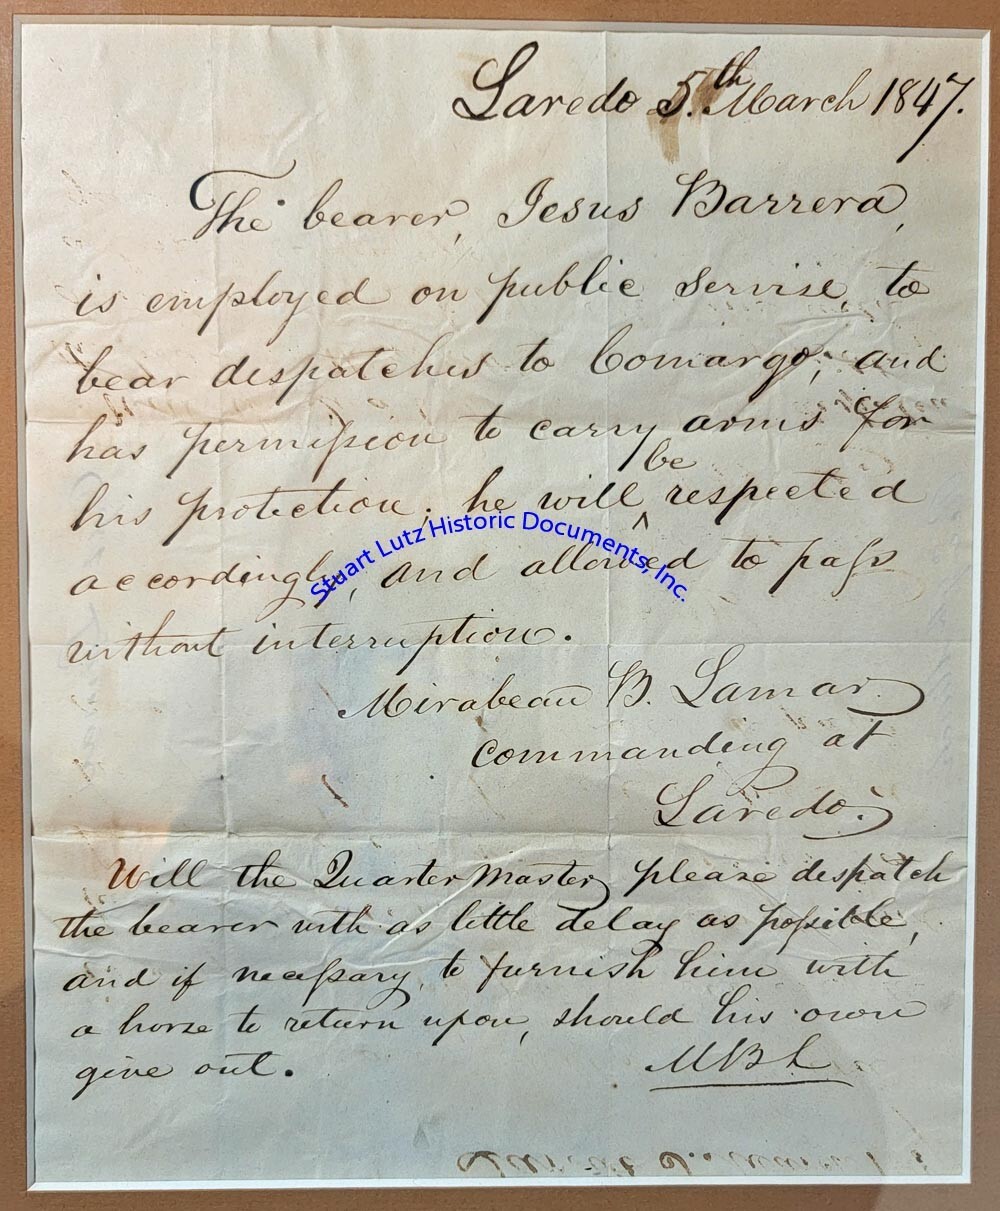 Laredo 5.th March 1847.
The bearer, Jesus Barrera,
is employed on public servise, to
bear despatches to Comargo; and
has permission to carry arms for
his protection; he will be respected
accordingly, and allowed to pass
without interruption.
Mirabeau B. Lamar
commanding at
Laredo.
Will the Quarter Master please despatch
the bearer with as little delay as possible,
and if necessary, to furnish him with
a horse to return upon, should his own
give out.
MBL
Stuart Lutz Historic Documents, Inc.